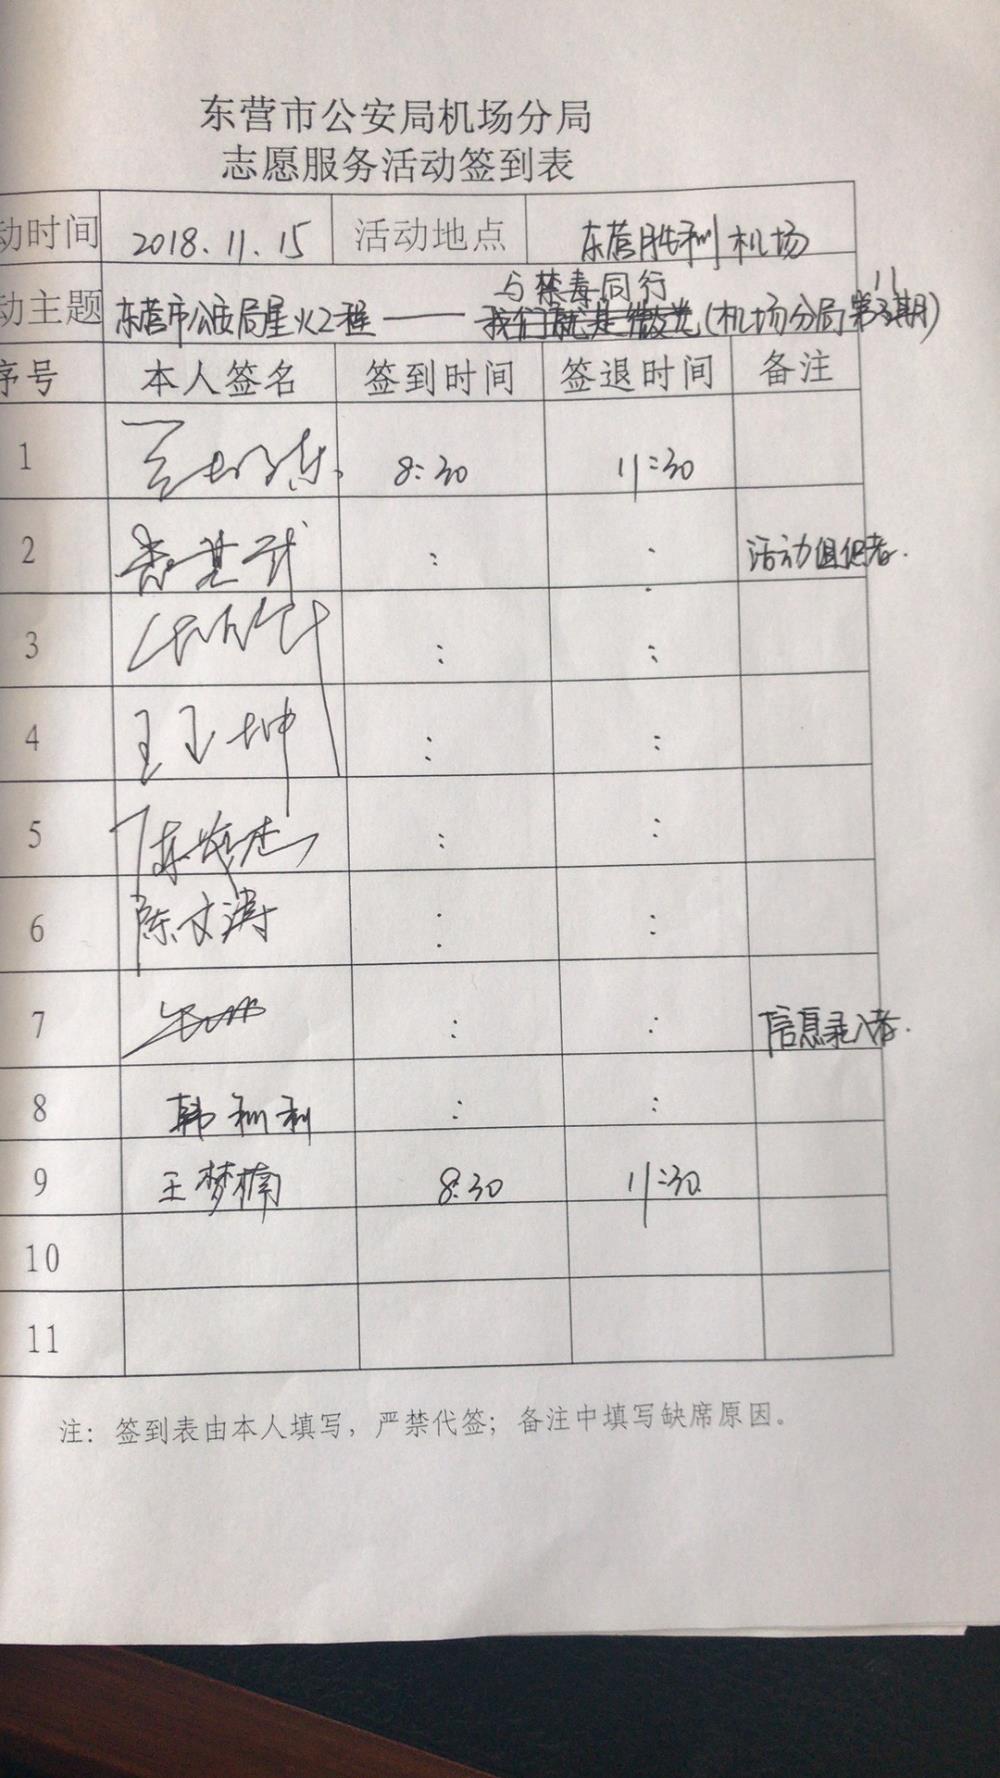 东营市公安局机场分局
志愿服务活动签到表
动时间 2018.11.15 活动地点 东营胜利机场
与禁毒同行 11
动主题 东营市公安局星火工程——我们就是微光(机场分局第期)
序号 本人签名 签到时间 签退时间 备注
1 8:30 11:30
2 : : 活动组织者.
3 : :
4 王玉坤 : :
5 陈 : :
6 陈文涛 : :
7 : : 信息录入者.
8 韩利利 : :
9 王梦楠 8:30 11:30
10
11
注：签到表由本人填写，严禁代签；备注中填写缺席原因。